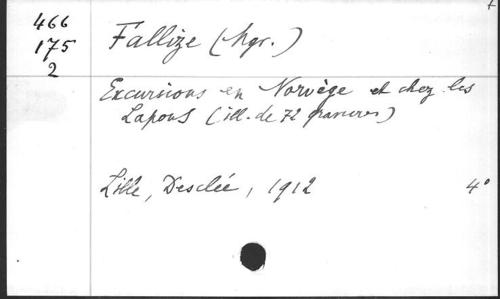 466
175
2
Fallize (Mgr.)
Excursions en Norvège et chez les
Lapons (ill. de 72 gravures)
Lille, Desclée, 1912 4°